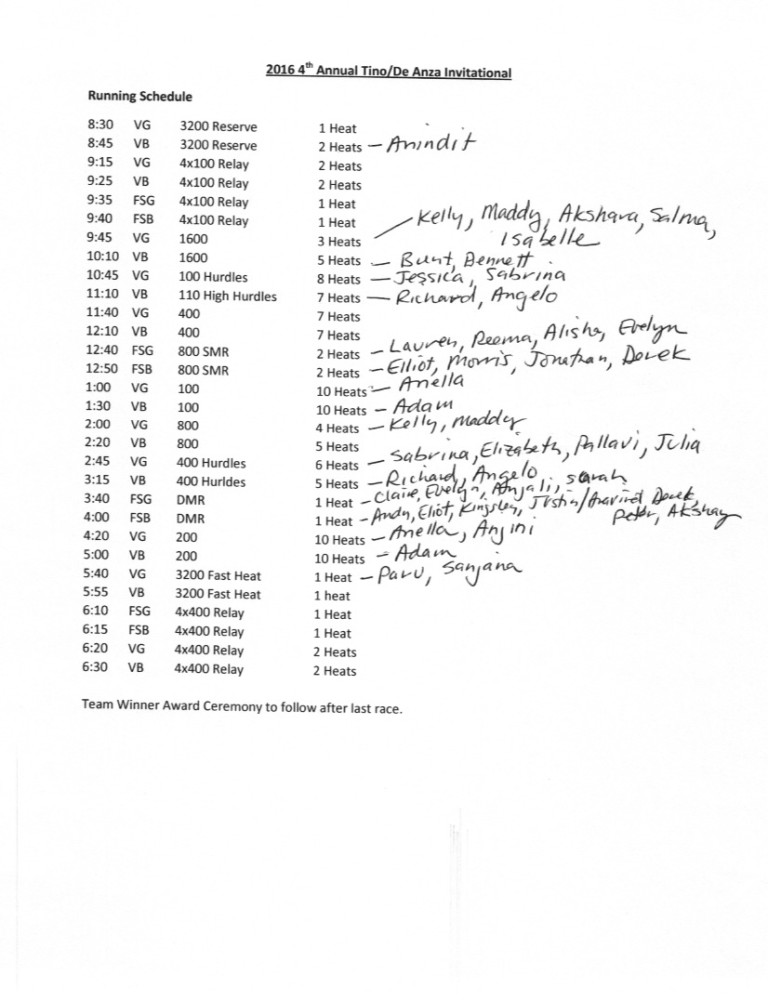 2016 4th Annual Tino/De Anza Invitational
Running Schedule
8:30 VG 3200 Reserve 1 Heat
8:45 VB 3200 Reserve 2 Heats – Anindit
9:15 VG 4x100 Relay 2 Heats
9:25 VB 4x100 Relay 2 Heats
9:35 FSG 4x100 Relay 1 Heat
9:40 FSB 4x100 Relay 1 Heat
9:45 VG 1600 3 Heats – Kelly, Maddy, Akshara, Salma,
Isabelle
10:10 VB 1600 5 Heats – Bunt, Bennett
10:45 VG 100 Hurdles 8 Heats – Jessica, Sabrina
11:10 VB 110 High Hurdles 7 Heats – Richard, Angelo
11:40 VG 400 7 Heats
12:10 VB 400 7 Heats
12:40 FSG 800 SMR 2 Heats – Lauren, Reema, Alisha, Evelyn
12:50 FSB 800 SMR 2 Heats – Elliot, Morris, Jonathan, Derek
1:00 VG 100 10 Heats – Anella
1:30 VB 100 10 Heats – Adam
2:00 VG 800 4 Heats – Kelly, Maddy
2:20 VB 800 5 Heats
2:45 VG 400 Hurdles 6 Heats – Sabrina, Elizabeth, Pallavi, Julia
3:15 VB 400 Hurldes 5 Heats – Richard, Angelo
3:40 FSG DMR 1 Heat – Claire, Evelyn, Anjali, Sarah
4:00 FSB DMR 1 Heat – Andy, Eliot, Kingsley, Justin/Aravind, Derek,
Peter, Akshay
4:20 VG 200 10 Heats – Anella, Anjini
5:00 VB 200 10 Heats – Adam
5:40 VG 3200 Fast Heat 1 Heat – Paru, Sanjana
5:55 VB 3200 Fast Heat 1 heat
6:10 FSG 4x400 Relay 1 Heat
6:15 FSB 4x400 Relay 1 Heat
6:20 VG 4x400 Relay 2 Heats
6:30 VB 4x400 Relay 2 Heats
Team Winner Award Ceremony to follow after last race.